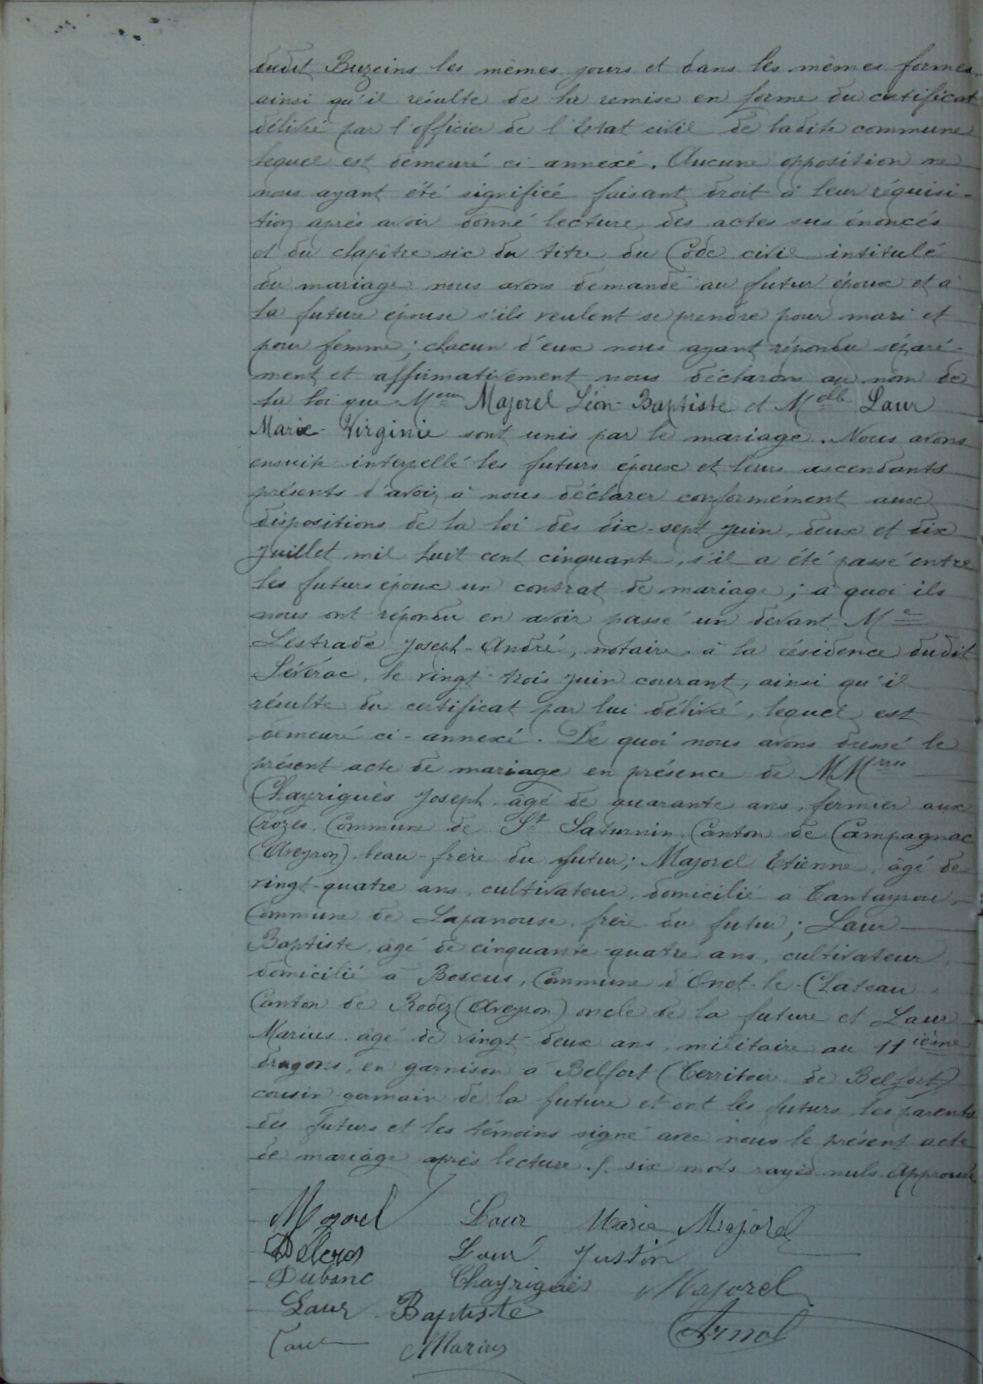 dudit Buzeins les mêmes jours et dans les mêmes formes
ainsi qu'il résulte de la remise en forme du certificat
délivré par l'officier de l'état civil de ladite commune
lequel est demeuré ci annexé. Aucune opposition ne
nous ayant été signifiée faisant droit à leur réquisi-
tion après avoir donné lecture des actes sus énoncés
et du chapitre six du titre du Code civil intitulé
du mariage nous avons demandé au futur époux et à
la future épouse s'ils veulent se prendre pour mari et
pour femme; chacun d'eux nous ayant répondu séparé-
ment et affirmativement nous déclarons au nom de
la loi que Meur Majorel Léon-Baptiste et Melle Laur
Marie-Virginie sont unis par le mariage. Nous avons
ensuite interpellé les futurs époux et leurs ascendants
présents d'avoir à nous déclarer conformément aux
dispositions de la loi des dix-sept juin, deux et dix
juillet mil huit cent cinquante, s'il a été passé entre
les futurs époux un contrat de mariage; à quoi ils
nous ont répondu en avoir passé un devant Me
Lestrade Joseph-André, notaire à la résidence dudit
Sévérac, le vingt-trois juin courant, ainsi qu'il
résulte du certificat par lui délivré, lequel est
demeuré ci-annexé. De quoi nous avons dressé le
présent acte de mariage en présence de MMrs
Chayriguès Joseph âgé de quarante ans, fermier aux
Crozes Commune de St Saturnin Canton de Campagnac
(Aveyron) beau-frère du futur; Majorel Etienne, âgé de
vingt-quatre ans, cultivateur, domicilié à
Commune de Lapanouse frère du futur; Laur
Baptiste âgé de cinquante-quatre ans, cultivateur,
domicilié à Boscus, Commune d'Onet-le-Château
Canton de Rodez (Aveyron) oncle de la future et Laur
Marius âgé de vingt-deux ans, militaire au 11ième
dragons, en garnison à Belfort (Territoire de Belfort)
cousin germain de la future et ont les futurs, les parents
des futurs et les témoins signé avec nous le présent acte
de mariage après lecture./. six mots rayés nuls. Approuvé
Majorel Laur Marie Majorel
Delcros Laur Justin
Dubanc Chayriguès Majorel
Laur Baptiste Arnal
Laur Marius